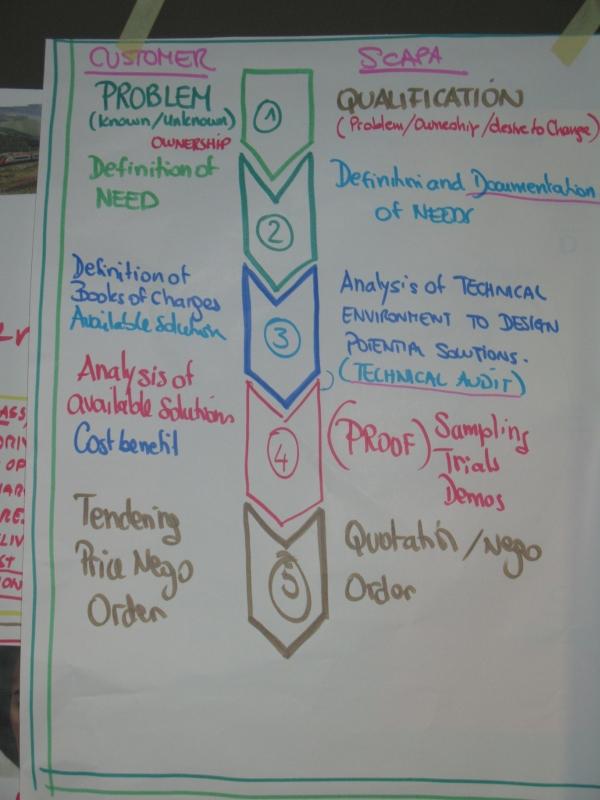 CUSTOMER
SCAPA
PROBLEM
(Known/Unknown)
OWNERSHIP
1
QUALIFICATION
(Problem/Ownership/desire to Change)
Definition of
NEED
2
Definition and Documentation
of NEEDS
Definition of
Books of Charges
Available Solution
3
Analysis of TECHNICAL
ENVIRONMENT TO DESIGN
POTENTIAL SOLUTIONS.
(TECHNICAL AUDIT)
Analysis of
available Solutions
Cost benefit
4
(PROOF) Sampling
Trials
Demos
Tendering
Price Nego
Order
5
Quotation/Nego
Order